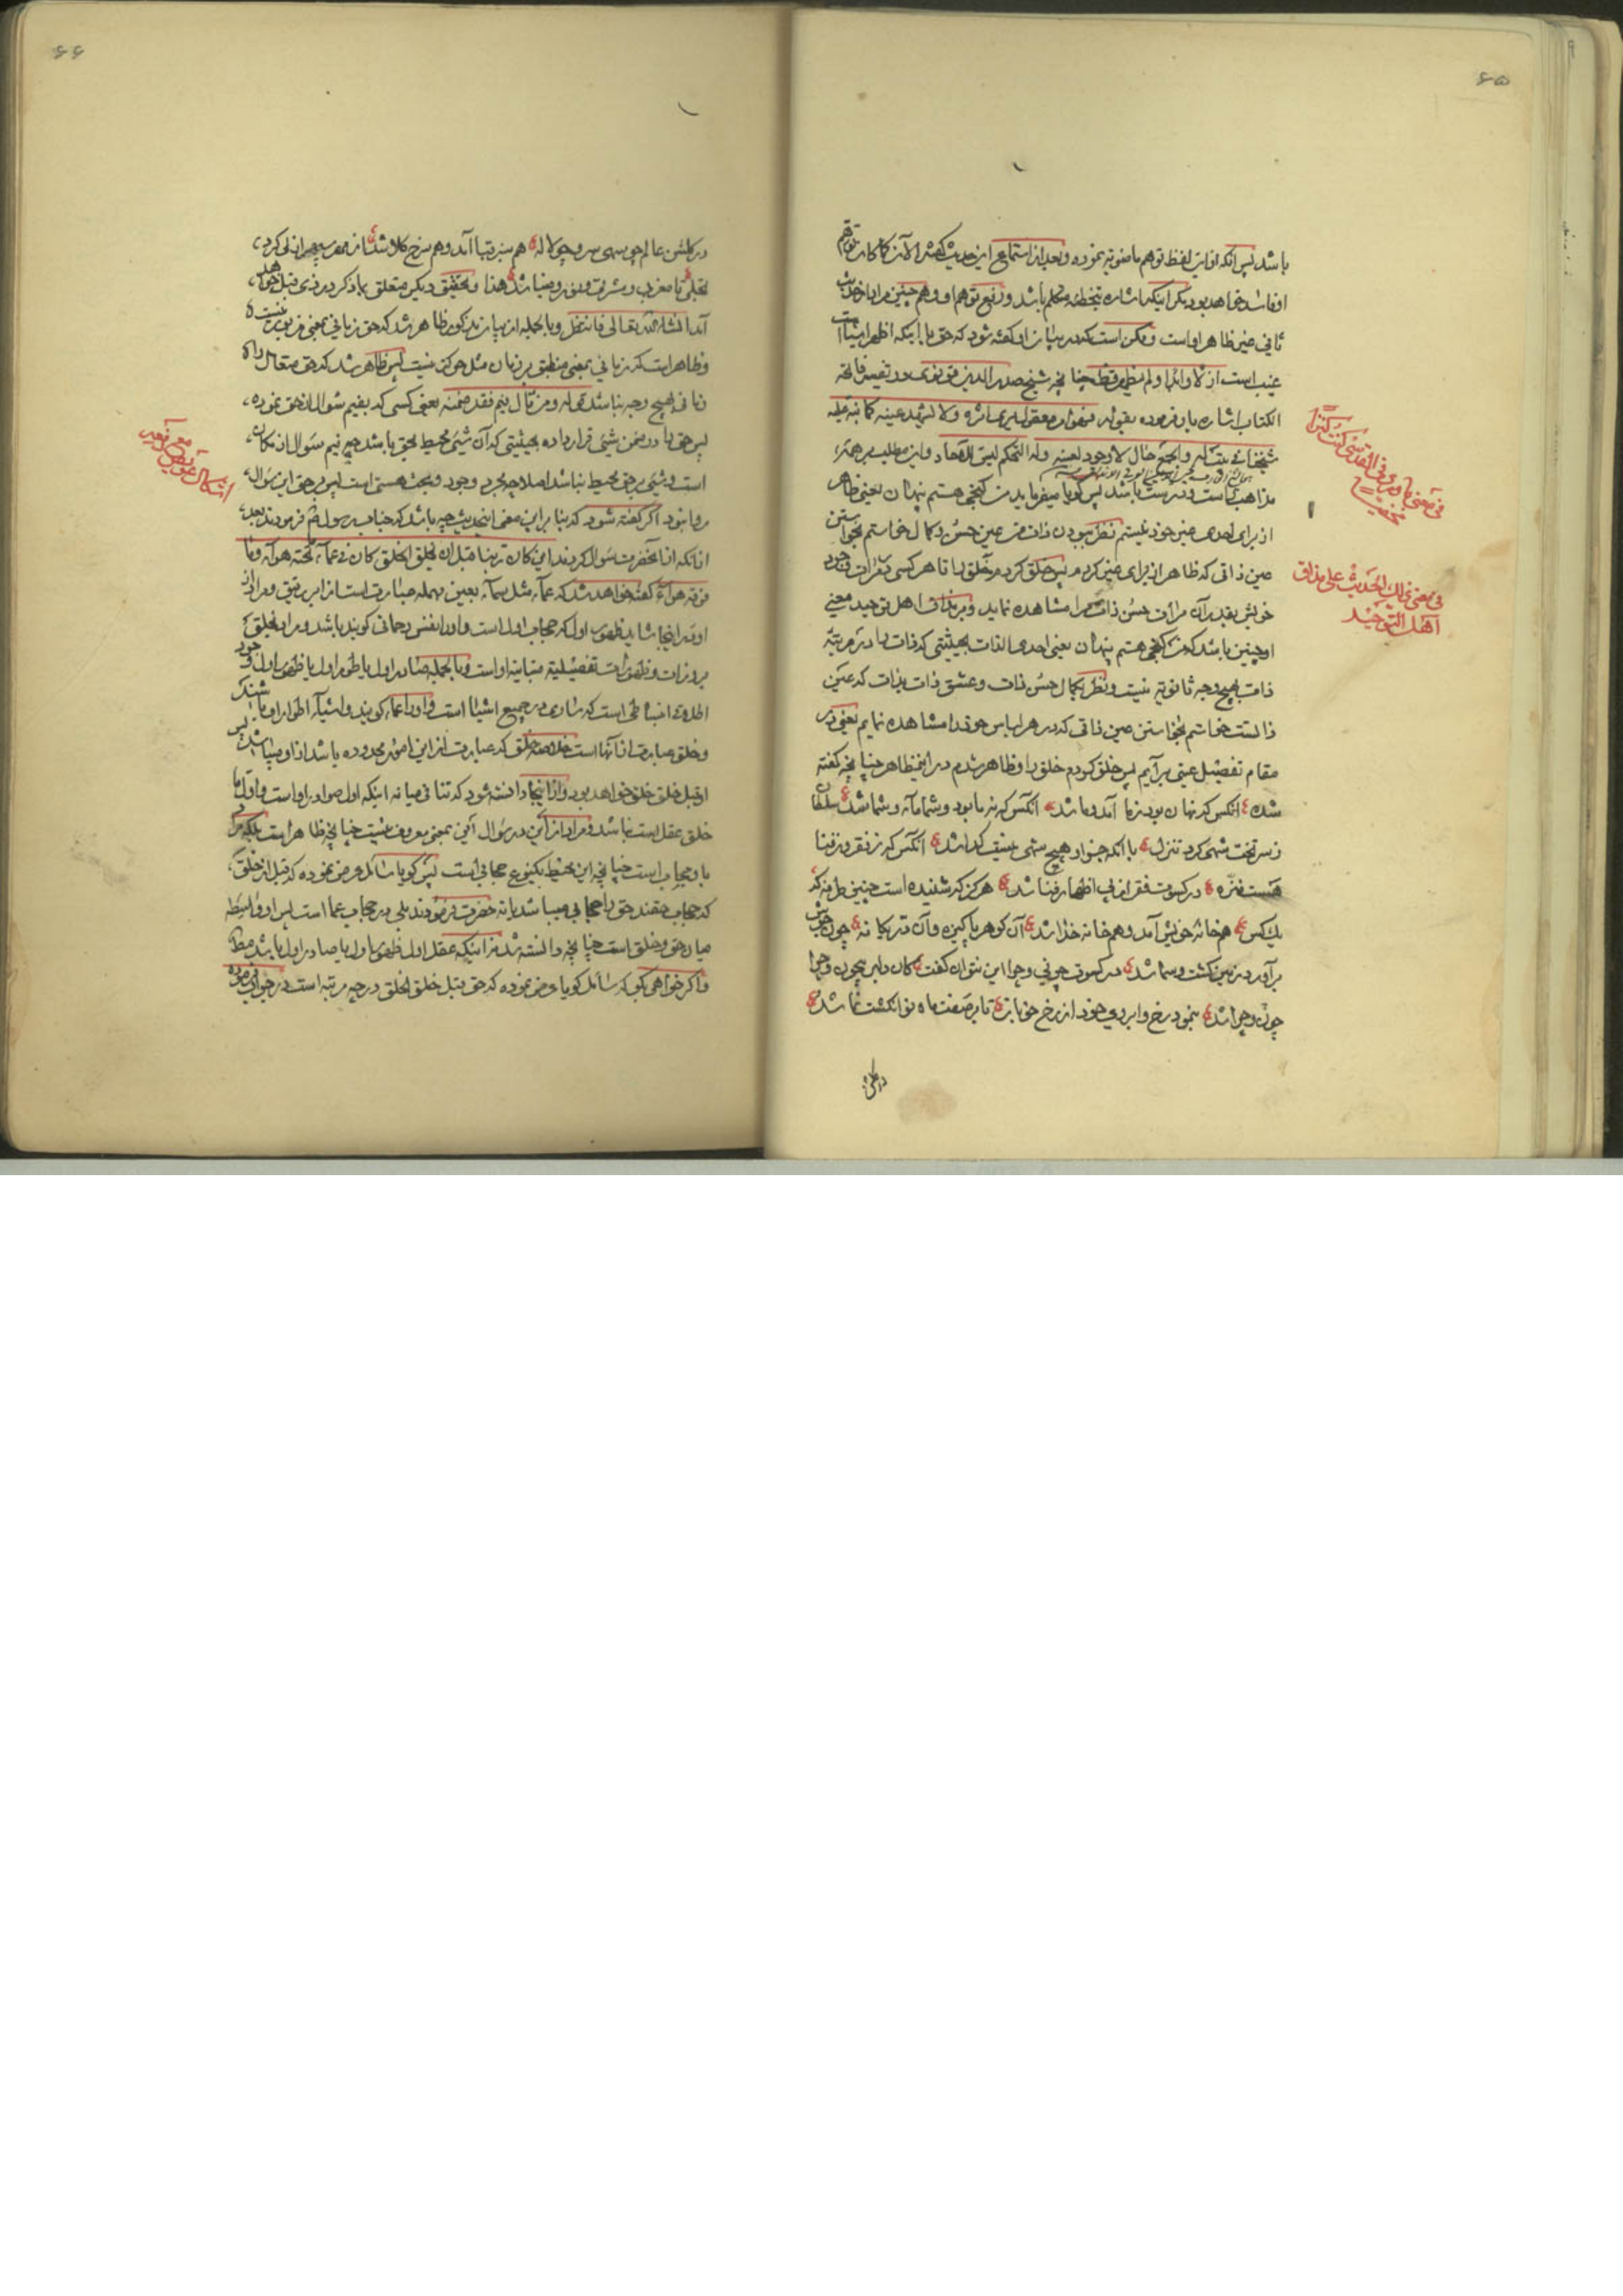 ۶۵
باشد پس آنکه از این لفظ توهم ماضویه نموده و بعد از استماع این حدیث گفته الآن کما کان توهم
او فاسد خواهد بود دیگر اینکه اشاره بتخطئه متکلم باشد و رفع توهم او و هم چنین مراد از حدیث
ثانی غیر ظاهر او است و ممکن است که در بیان او گفته شود که حق با اینکه اظهر اشیا است
غیب است ازلا و ابدا و لم یظهر قط چنانچه شیخ صدر الدین قونوی در تفسیر فاتحة
الکتاب اشاره بان فرموده بقوله فهو معقول یری اثره و لا یشهد عینه کما نبه علیه
شیخنا فی بیت له و الجمع حال لا وجود لعینه وله التحکم لیس للآحاد و این مطلب بر همه
مذاهب راست و درست باشد پس گویا میفرماید من گنجی هستم پنهان یعنی ظاهر
از برای احدی غیر خود نیستم نظر ببودن ذات من عین حسن و کمال خواستم بخواستن
عین ذاتی که ظاهر از برای غیر گردم پس خلق کردم خلق را تا هر کسی بقدرات وجود
خویش بقدر آن مرآت حسن ذات مرا مشاهده نماید و بر مذاق اهل توحید معنی
او چنین باشد که من گنجی هستم پنهان یعنی احدی الذات بحیثیتی که ذات را در مرتبه
ذات بهیچ وجه ثانویة نیست و نظر بکمال حسن ذات و عشق ذات بذات که عین
ذاتست خواستم بخواستن عین ذاتی که در هر لباس خود را مشاهده نمایم یعنی در
مقام تفصیل عینی برآیم پس خلق کردم خلق را و ظاهر شدم در این مظاهر چنانچه گفته
شده ع آنکس که نهان بود ز ما آمد و ما شد ع آنکس که نه ما بود و شما ما و شما شد ع سلطان
ز سر تخت شهی کرد تنزل ع با آنکه جز او هیچ شهی نیست گدا شد ع آنکس که ز فقر و ز غنا
هست منزه ع در کسوت فقر از پی اظهار غنا شد ع هرگز که شنیده است چنین طرفه که
یک کس ع هم خانه خویش آمد و هم خانه خدا شد ع آن گوهر پاکیزه و آن در یگانه ع چون جوش
برآورد زمین گشت و سما شد ع در کسوت چونی و چرا این نتوان گفت ع کان دلبر بیچون و چرا
چون و چرا شد ع بنمود رخ و ابروی خود از رخ خوبان ع تا بر صفت ماه نو انگشت نما شد ع
در گلشن
فی معنی ما ورد فی القدسی کنت کنزا
مخفیا الخ
فی معنی ذلک الحدیث علی مذاق
اهل التوحید
۶۶
در گلشن عالم چو سهی سرو و چو لاله ع هم سبز قبا آمد و هم سرخ کلا شد ع آن مهر سپهر ازلی کرد
تجلی ع تا مغرب و مشرق و نور و ضیا شد ع هذا و تحقیق دیگر متعلق بما ذکر در بندی قبل خواهد
آمد انشاء الله تعالی فانتظر و بالجمله از بیان مذکور ظاهر شد که حق زمانی بمعنی مزبور نیست
و ظاهر است که زمانی بمعنی منطبق بر زمان مثل حرکت نیست پس ظاهر شد که حق متعال را
زمانی بهیچ وجه نباشد قوله و من قال فیم فقد ضمنه یعنی کسی که بفیم سئوال از حق نموده
پس حق را در ضمن شیئی قرار داده بحیثیتی که آن شیئی محیط بحق باشد چه فیم سئوال از مکان
است و شیئی بر حق محیط نباشد اصلا چه مجرد وجود و بحت هستی است پس بر حق این سئوال
روا نبود اگر گفته شود که بنا بر این معنی این حدیث چه باشد که جناب رسول ص فرمودند بعد
از آنکه از آنحضرت سئوال کردند این کان ربنا قبل ان یخلق الخلق کان فی عماء تحته هواء و ما
فوقه هواء گفته خواهد شد که عماء مثل سماء بعین مهمله عبارت است از ابر رقیق و مراد از
او در اینجا شاید ظهور اول که حجاب اول است و او را نفس رحمانی گویند باشد و مراد بخلق
بروزات و ظهورات تفصیلیه متباینه او است و بالجمله صادر اول یا طور اول یا ظهور اول وجود
اطلاق انبساطی است که ساری در جمیع اشیا است و او را عماء گویند و اشیاء اطوار او باشند
و خلق عبارت از آنها است خلاصه خلق که عبارت از این امور محدوده باشد از او میباشد پس
او قبل خلق خلق خواهد بود و از اینجا دانسته شود که تنافی میانه اینکه اول صوادر او است و اول ما
خلق عقل است نباشد و مراد از این در سئوال این بمعنی معروف نیست چنانچه ظاهر است بلکه مراد
باو حجاب است چنانچه این محیط بکنوع حجابی است پس گویا سائل عرض نموده که قبل از خلق
که حجاب حقند حق را حجابی میباشد یا نه حضرت فرمودند بلی در حجاب عما است پس او واسطه
میان حق و خلق است چنانچه دانسته شد نه اینکه عقل اول ظهور اول یا صادر اول باشد مطلقا
و اگر خواهی بگو که سائل گویا عرض نموده که حق قبل خلق الخلق در چه مرتبه است در جواب فرموده
اشکال عویص
مع دفعه